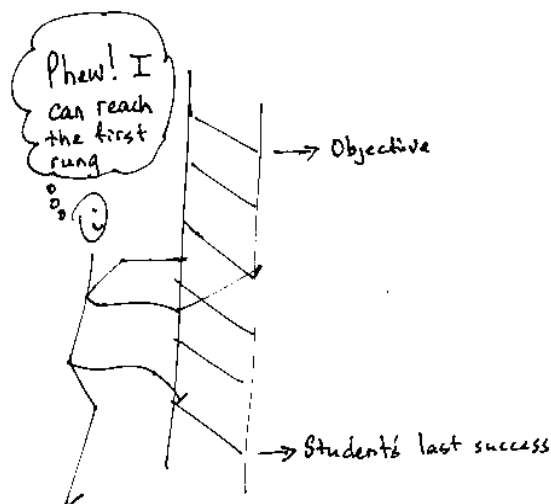 Phew! I
can reach
the first
rung
Objective
Student's last success